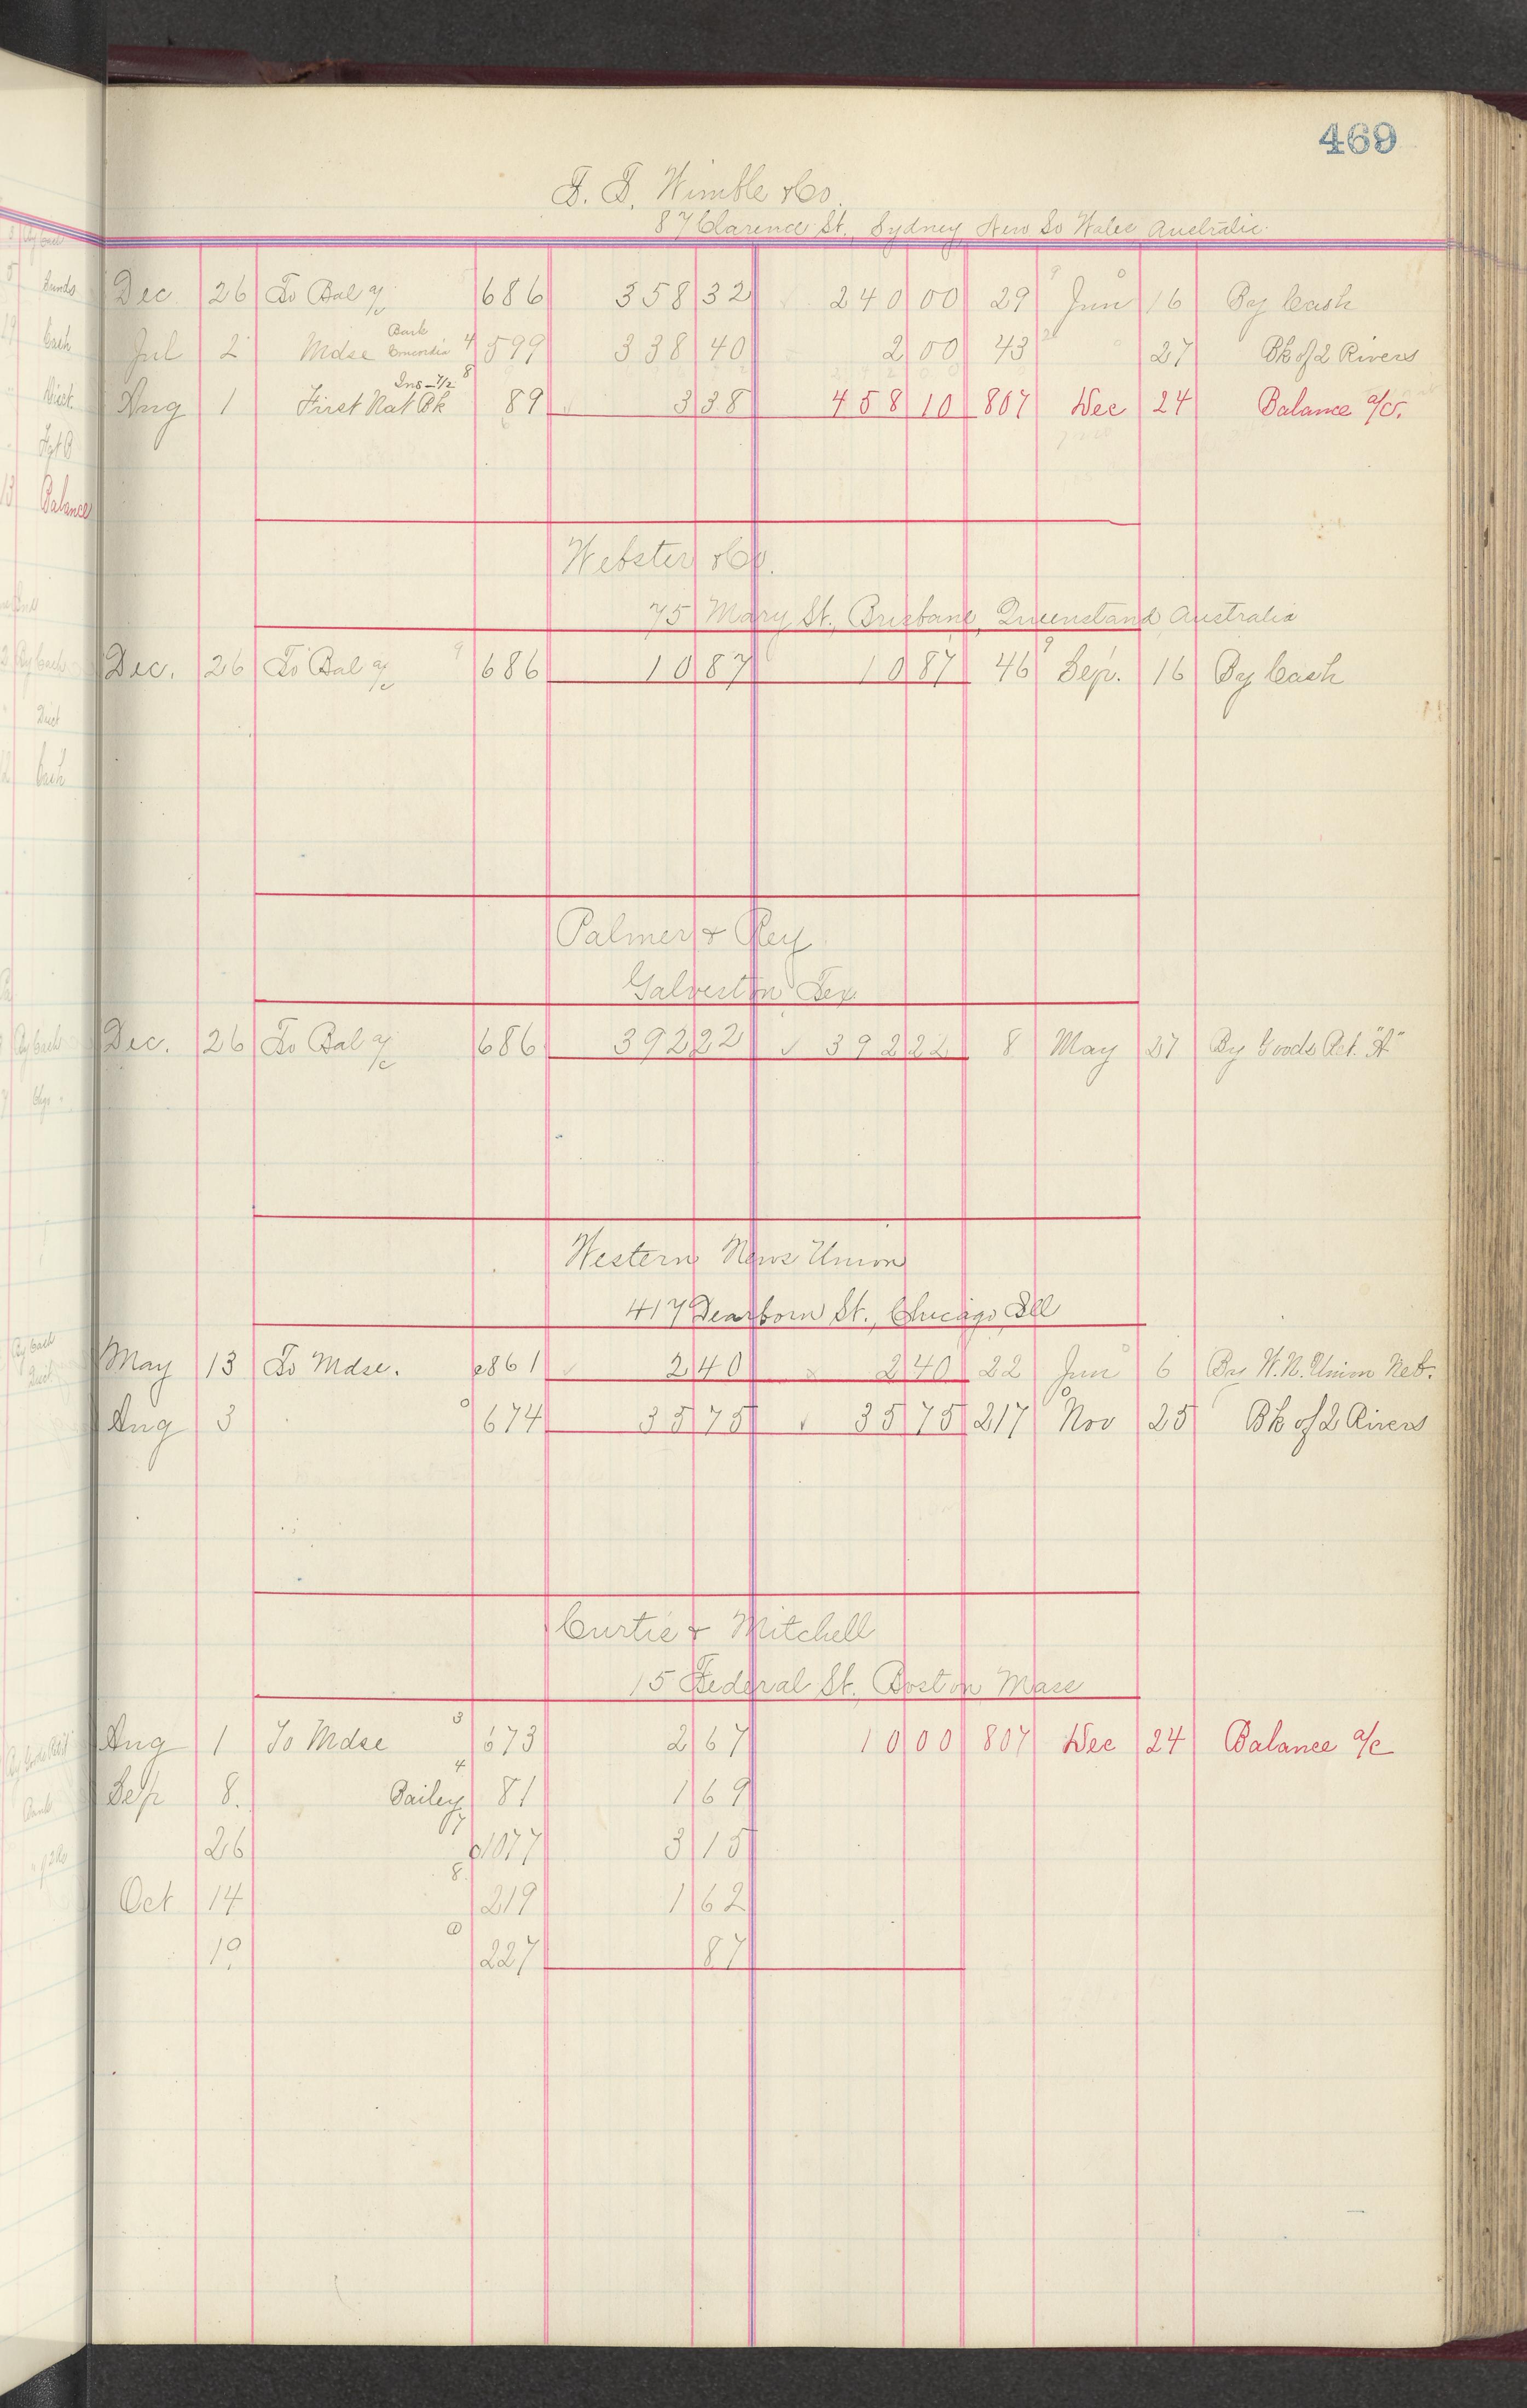 469
F. T. Wimble & Co.
87 Clarence St., Sydney New So Wales Australia
Dec. 26 To Bal a/c 686 358 32 240 00 29 Jun 16 By Cash
Jul 2 Mdse Bark Concordia 599 338 40 2 00 43 27 Bk of 2 Rivers
Aug 1 First Nat Bk Ins - 7/2 89 3 38 458 10 807 Dec 24 Balance a/c.
Webster & Co.
75 Mary St., Brisbane, Queensland Australia
Dec. 26 To Bal a/c 686 10 87 10 87 46 Sep. 16 By Cash
Palmer & Rey
Galveston Tex.
Dec. 26 To Bal a/c 686 392 22 392 22 8 May 27 By Goods Ret. "A"
Western News Union
417 Dearborn St., Chicago Ill
May 13 To Mdse. 861 2 40 2 40 22 Jun 6 By W. N. Union Neb.
Aug 3 674 35 75 35 75 217 Nov 25 Bk of 2 Rivers
Curtis & Mitchell
15 Federal St. Boston Mass
Aug 1 To Mdse 673 2 67 10 00 807 Dec 24 Balance a/c
Sep 8. Bailey 81 1 69
26 1077 3 15
Oct 14 219 1 62
19 227 87